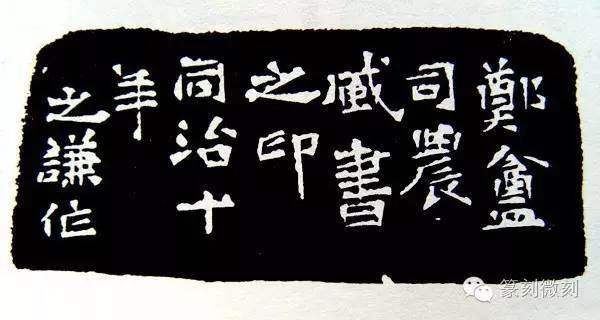 鄭盦
司農
臧書
之印
同治十
年
之謙作
篆刻微刻